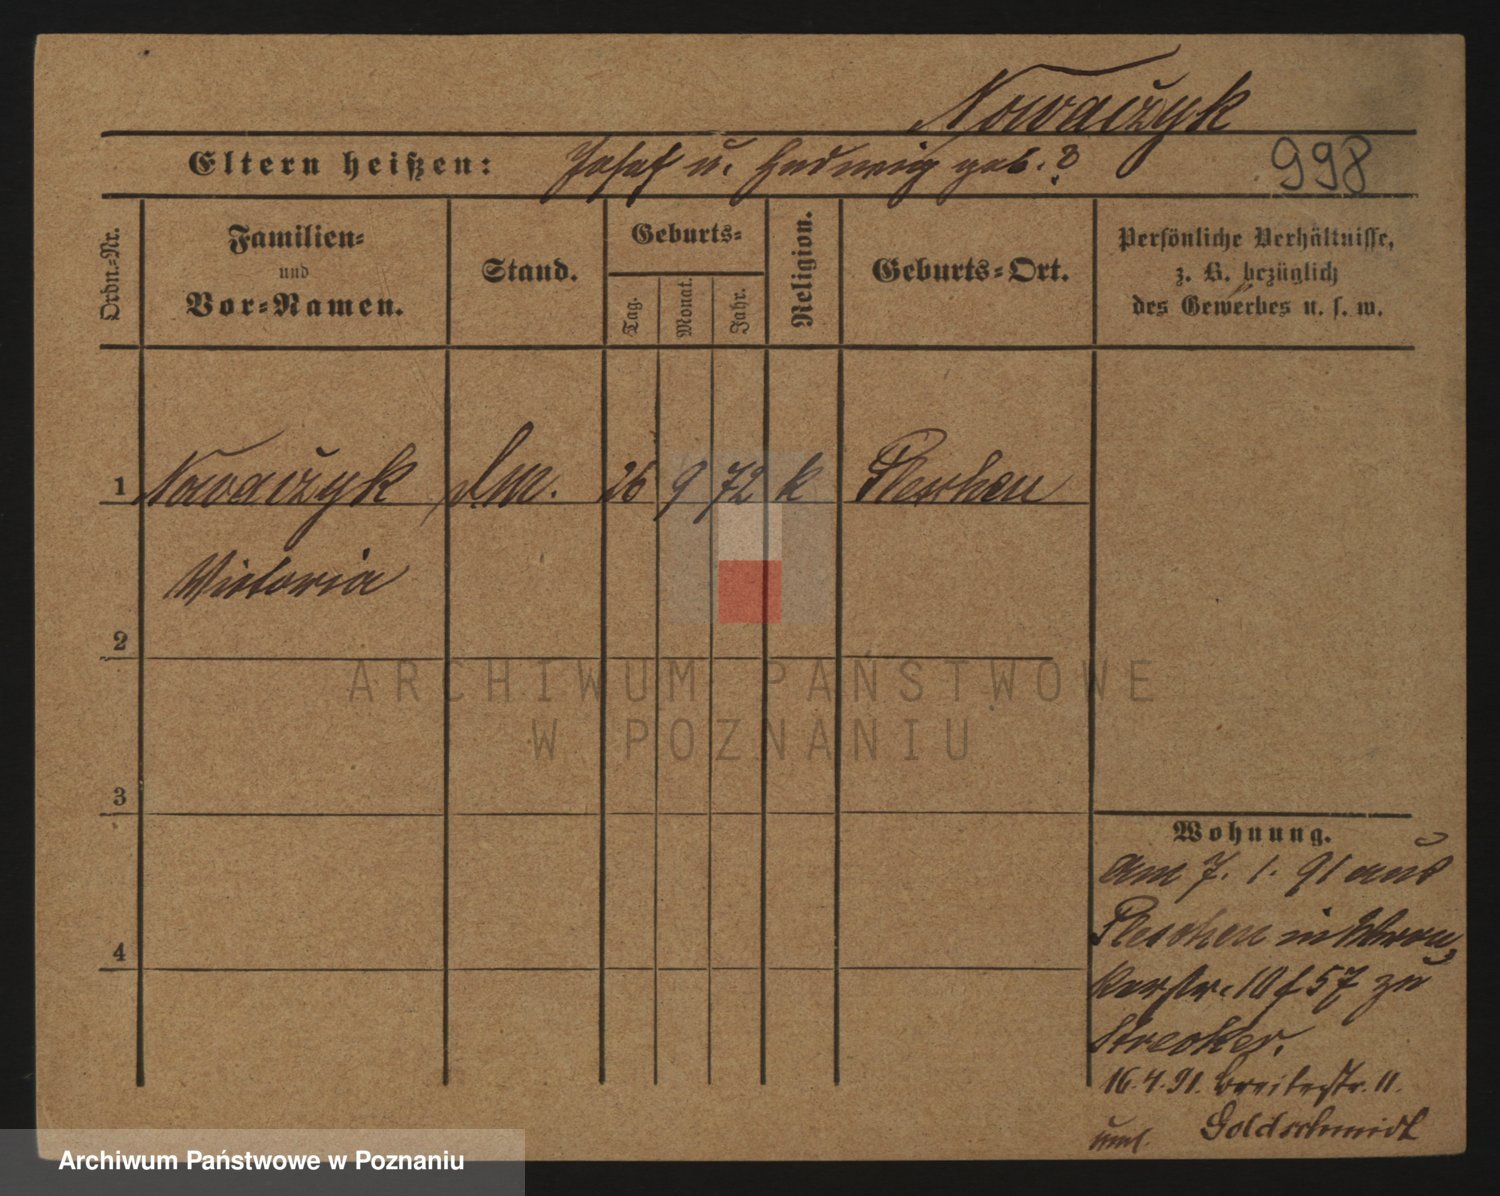 Nowaczyk
Eltern heißen: Josef u. Hedwig geb. ?
998
Ordn.=Nr.
Familien=
und
Vor=Namen.
Stand.
Geburts=
Tag.
Monat.
Jahr.
Religion.
Geburts=Ort.
Persönliche Verhältnisse,
z. B. bezüglich
des Gewerbes u. s. w.
1 Nowaczyk 26 9 72 k Pleschen
Victoria
2
3
4
Wohnung.
am 7. 1. 91 aus
Pleschen in Wron
kerstr. 10 f 57 zu
Strecker.
16.4.91. Breitestr. 11.
Goldschmidt
ARCHIWUM PAŃSTWOWE
W POZNANIU
Archiwum Państwowe w Poznaniu